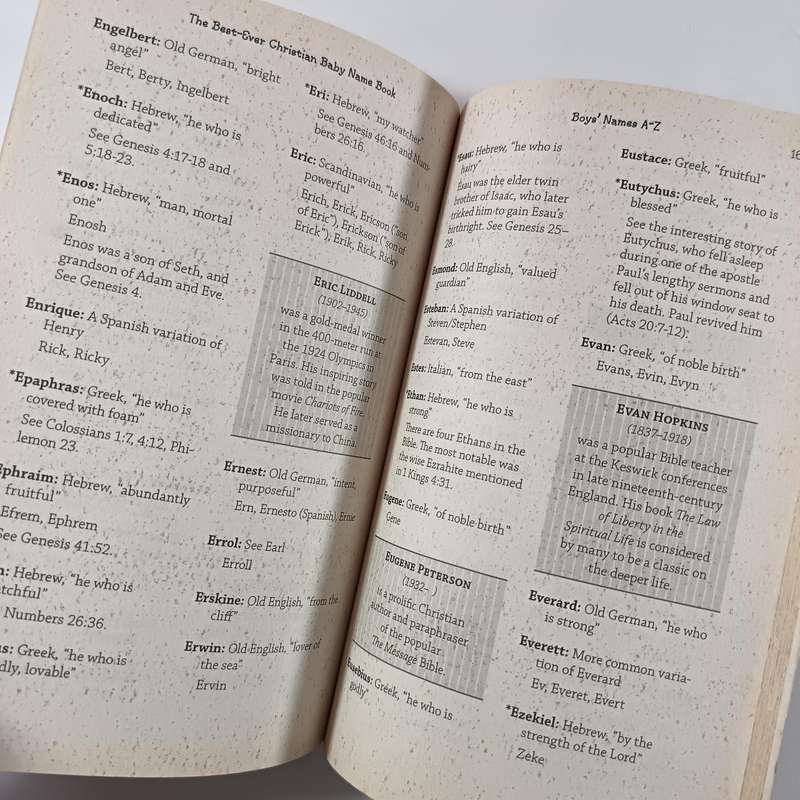 The Best-Ever Christian Baby Name Book
Engelbert: Old German, "bright
angel"
Bert, Berty, Ingelbert
*Enoch: Hebrew, "he who is
dedicated"
See Genesis 4:17-18 and
5;18-23.
*Enos: Hebrew, "man, mortal
one"
Enosh
Enos was a son of Seth, and
grandson of Adam and Eve.
See Genesis 4.
Enrique: A Spanish variation of
Henry
Rick, Ricky
*Epaphras: Greek, "he who is
covered with foam"
See Colossians 1:7, 4:12, Phi-
lemon 23.
Ephraim: Hebrew, "abundantly
fruitful"
Efrem, Ephrem
See Genesis 41:52.
Hebrew, "he who is
Numbers 26:36.
Greek, "he who is
lovable"
*Eri: Hebrew, "my watcher"
See Genesis 46:16 and Num-
bers 26:16.
Eric: Scandinavian, "he who is
powerful"
Erich, Erick, Ericson ("son
of Eric"), Erickson ("son of
Erick"), Erik, Rick, Ricky
ERIC LIDDELL
(1902-1945)
was a gold-medal winner
in the 400-meter run at
the 1924 Olympics in
Paris. His inspiring story
was told in the popular
movie Chariots of Fire.
He later served as a
missionary to China.
Ernest: Old German, "intent,
purposeful"
Ern, Ernesto (Spanish), Ernie
Errol: See Earl
Erroll
Erskine: Old English, "from the
cliff"
Erwin: Old English, "lover of
the sea"
Ervin
Boys' Names A-Z
*Esau: Hebrew, "he who is
hairy"
Esau was the elder twin
brother of Isaac, who later
tricked him to gain Esau's
birthright. See Genesis 25–
28.
Esmond: Old English, "valued
guardian"
Esteban: A Spanish variation of
Steven/Stephen
Estevan, Steve
Estes: Italian, "from the east"
*Ethan: Hebrew, "he who is
strong"
There are four Ethans in the
Bible. The most notable was
the wise Ezrahite mentioned
in 1 Kings 4:31.
Eugene: Greek, "of noble birth"
Gene
EUGENE PETERSON
(1932- )
is a prolific Christian
author and paraphraser
of the popular
The Message Bible.
Eusebius: Greek, "he who is
godly"
Eustace: Greek, "fruitful"
*Eutychus: Greek, "he who is
blessed"
See the interesting story of
Eutychus, who fell asleep
during one of the apostle
Paul's lengthy sermons and
fell out of his window seat to
his death. Paul revived him
(Acts 20:7-12).
Evan: Greek, "of noble birth"
Evans, Evin, Evyn
EVAN HOPKINS
(1837-1918)
was a popular Bible teacher
at the Keswick conferences
in late nineteenth-century
England. His book The Law
of Liberty in the
Spiritual Life is considered
by many to be a classic on
the deeper life.
Everard: Old German, "he who
is strong"
Everett: More common varia-
tion of Everard
Ev, Everet, Evert
*Ezekiel: Hebrew, "by the
strength of the Lord"
Zeke